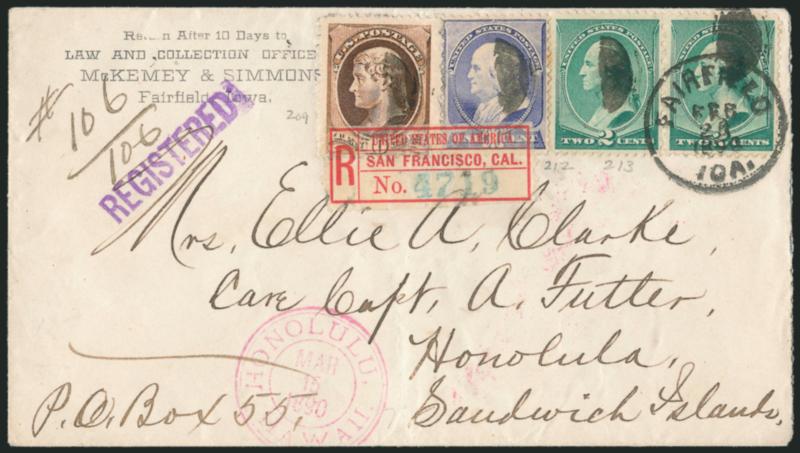 Return After 10 Days to
LAW AND COLLECTION OFFICE
McKEMEY & SIMMONS
Fairfield, Iowa.
# 106
106
REGISTERED
209
U.S. POSTAGE
UNITED STATES POSTAGE
UNITED STATES POSTAGE
TWO 2 CENTS
TWO 2 CENTS
FAIRFIELD
FEB
IOA.
212 213
UNITED STATES OF AMERICA.
R
SAN FRANCISCO, CAL.
No. 4719
Mrs. Ellie A. Clarke,
Care Capt. A. Fuller,
Honolula,
Sandwich Islands,
P.O. Box 55,
HONOLULU.
MAR
15
1890